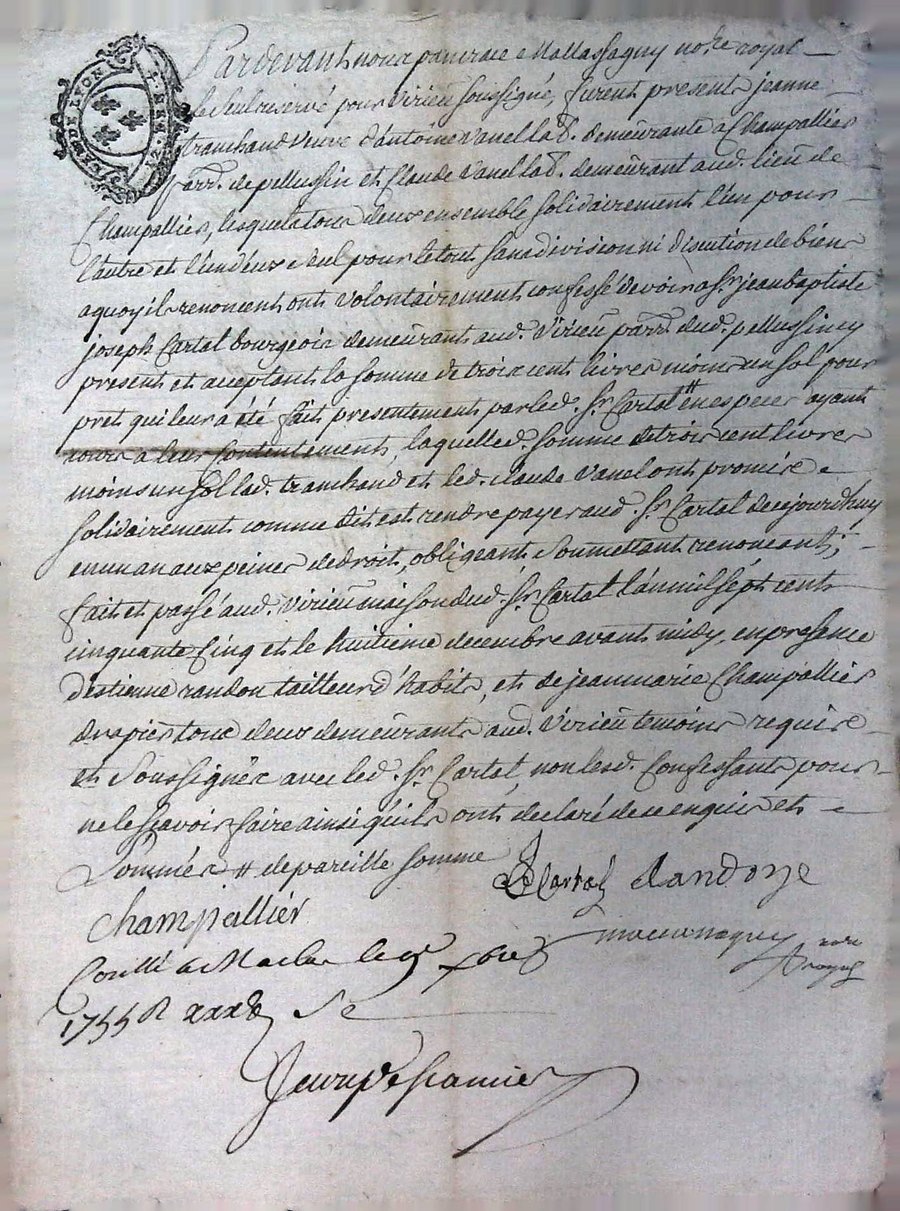 GEN. DE LYON
Pardevant nous pancrace Mallassagny no.re royal
le seul reservé pour Virieu soussigné, furent present jeanne
tranchand veuve d'antoine vanel lab. demeurante à Champallier
parr. de pellussin et Claude vanel lab. demeurant aud. lieu de
Champallier, lesquels tous deux ensemble solidairement l'un pour
l'autre et l'un d'eux seul pour le tout sans division ni discution de bien
a quoy il renoncent ont volontairement confessé devoir a Sr jean baptiste
joseph Cartal bourgeois demeurant aud. Virieu parr. dud. pellussin cy
present et acceptant la somme de troix cent livres moins un sol pour
pret qui leur a été fait presentement par led. Sr Cartal # en especes ayant
cours a leur contentement, laquelle d. somme de trois cent livres
moins un sol lad. tranchand et led. claude vanel ont promis
solidairement comme dit est rendre payer aud. Sr Cartal de cejourd'huy
en un an aux peines de droit, obligeant soumettant renonceant,
fait et passé aud. Virieu maison dud. Sr Cartal l'an mil sept cent
cinquante cinq et le huitieme decembre avant midy, en presance
d'estienne randon tailleur d'habits, et de jean marie Champallier
drapier tous deux demeurants aud. Virieu temoins requis
et soussignés avec led. Sr Cartal, non lesd. Confessants pour
ne le sçavoir faire ainsi qu'ils ont declaré de ce enquis et
Sommés # de pareille somme
Cartal Randon
Champallier
no.re royal
Con.llé a Maclas le 9e xbre
1755 R